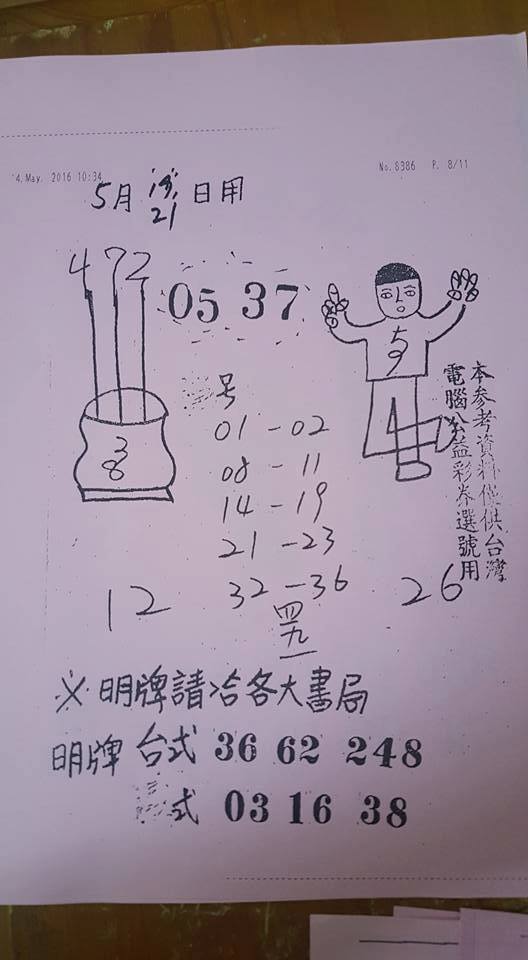 4.May. 2016 10:34
No.8386 P. 8/11
5月 19. 21 日用
4 7 2
05 37
5 9
3 8
号
01-02
08-11
14-19
21-23
32-36
四九一
12
26
本參考資料僅供台灣
電腦公益彩券選號用
※明牌請洽各大書局
明牌 台式 36 62 248
式 03 16 38